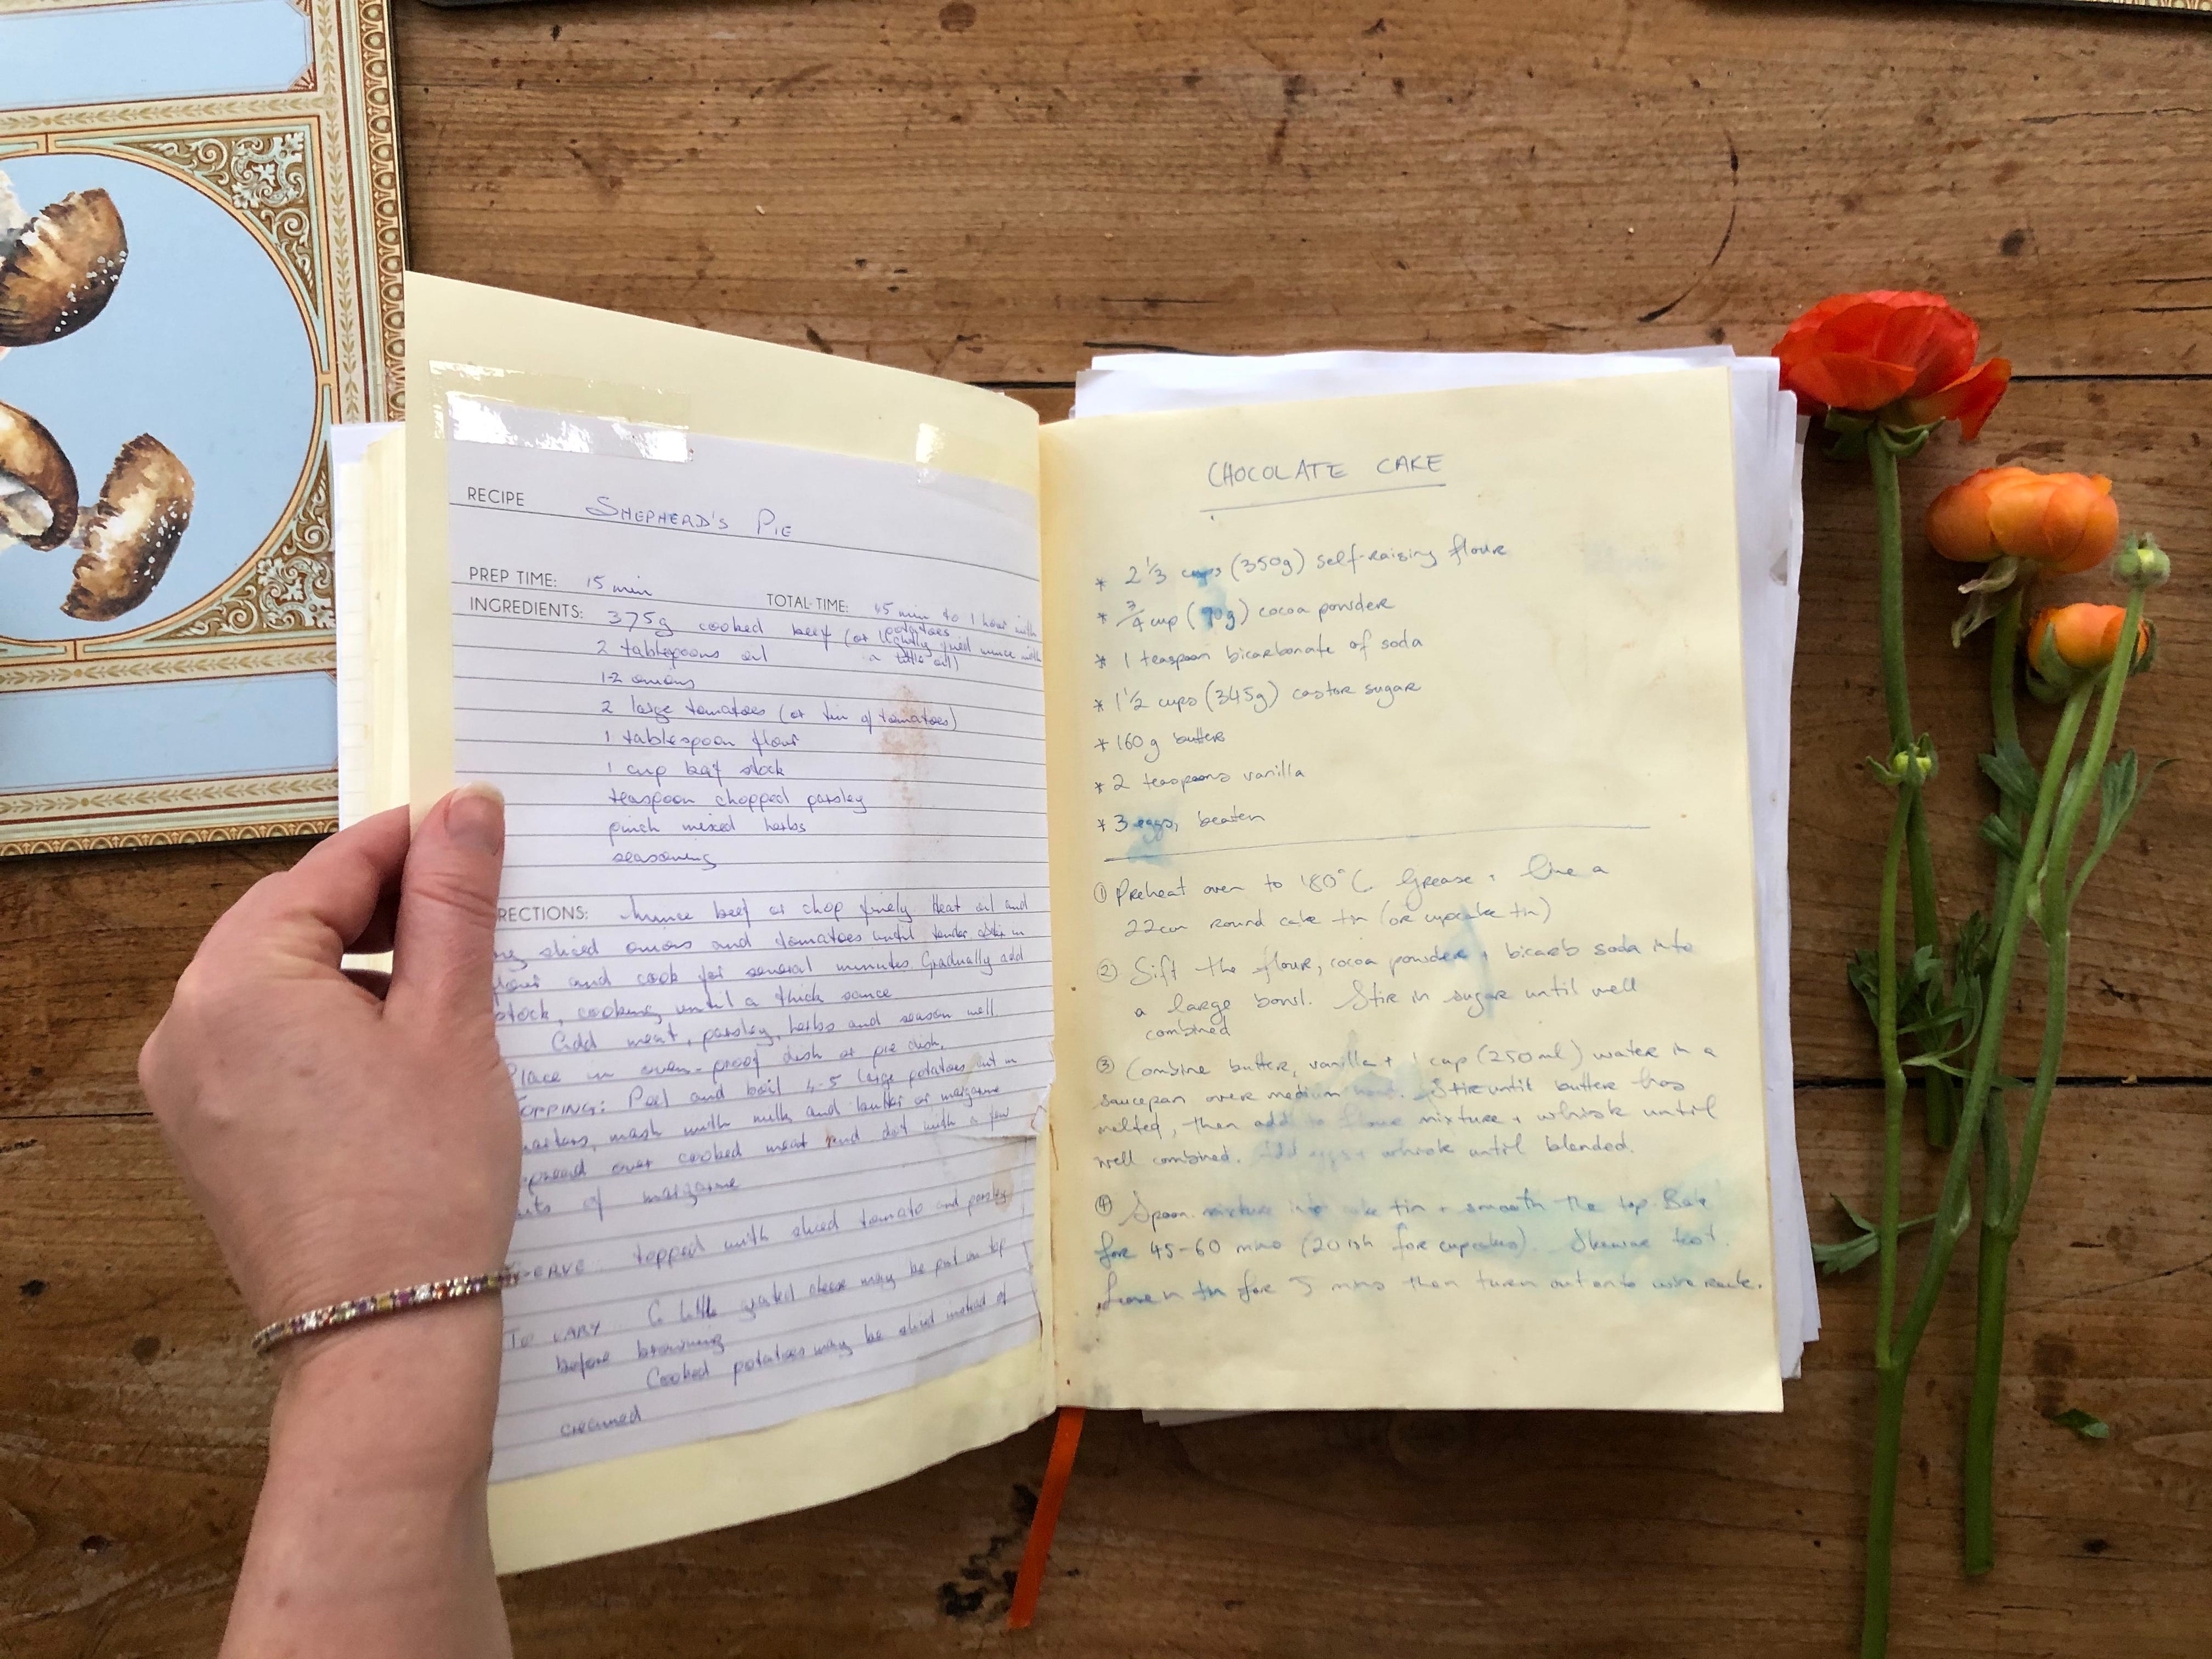 RECIPE SHEPHERD'S PIE
PREP TIME: 15 min TOTAL TIME: 45 min to 1 hour with
potatoes
INGREDIENTS: 375g cooked beef (or lightly fried mince with
a little oil)
2 tablespoons oil
1-2 onions
2 large tomatoes (or tin of tomatoes)
1 tablespoon flour
1 cup beef stock
teaspoon chopped parsley
pinch mixed herbs
seasoning
RECTIONS: Mince beef or chop finely. Heat oil and
sliced onions and tomatoes until tender. Stir in
and cook for several minutes. Gradually add
stock, cooking until a thick sauce
Add meat, parsley, herbs and season well
Place in oven-proof dish or pie dish.
OPPING: Peel and boil 4-5 large potatoes cut in
mash with milk and butter or margarine
spread over cooked meat and dot with a few
of margarine
ERVE: topped with sliced tomato and parsley
TO VARY A little grated cheese may be put on top
before browning
Cooked potatoes may be sliced instead of
creamed
CHOCOLATE CAKE
* 2 1/3 cups (350g) self-raising flour
* 3/4 cup (70g) cocoa powder
* 1 teaspoon bicarbonate of soda
* 1 1/2 cups (345g) castor sugar
* 160g butter
* 2 teaspoons vanilla
* 3 eggs, beaten
① Preheat oven to 180°C. Grease + line a
22cm round cake tin (or cupcake tin)
② Sift the flour, cocoa powder + bicarb soda into
a large bowl. Stir in sugar until well
combined
③ Combine butter, vanilla + 1 cup (250ml) water in a
saucepan over medium heat. Stir until butter has
melted, then add to flour mixture + whisk until
well combined. Add eggs + whisk until blended.
④ Spoon mixture into tin + smooth the top. Bake
for 45-60 mins (20ish for cupcakes). Skewer test.
Leave in tin for 5 mins then turn out onto wire rack.